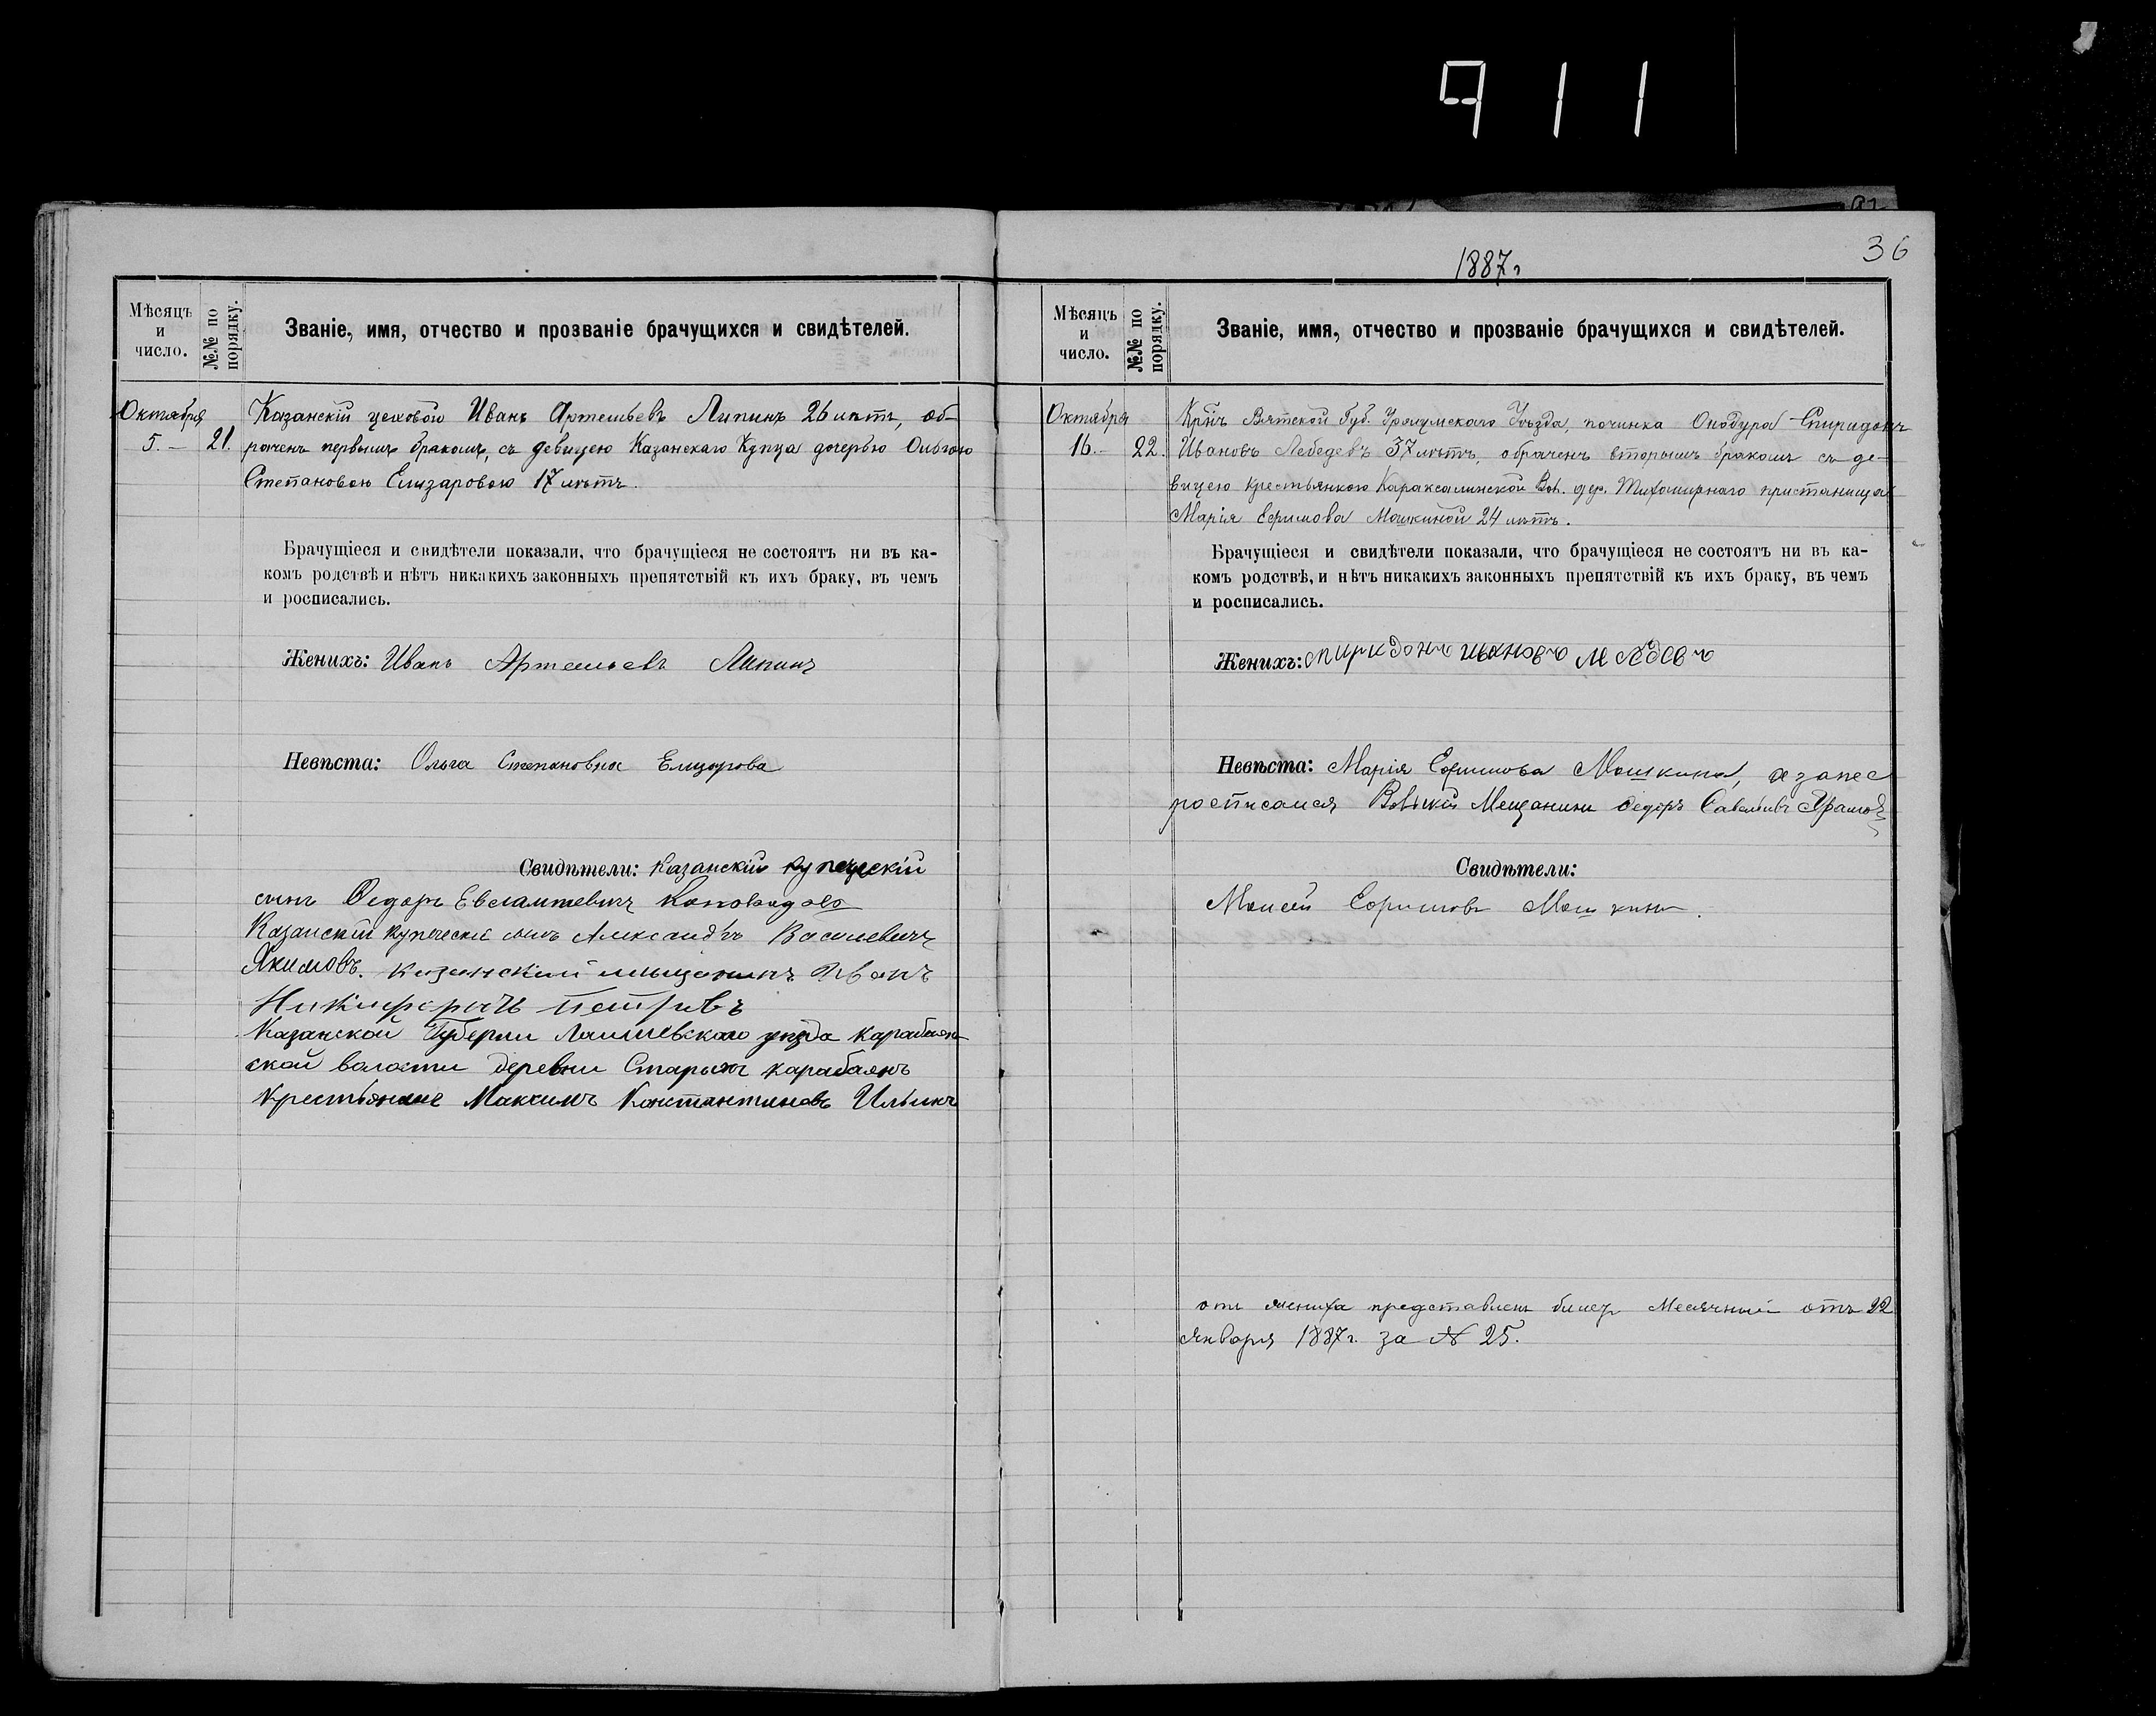 911
36
1887г
Мѣсяцъ и число.
№№ по порядку.
Званіе, имя, отчество и прозваніе брачущихся и свидѣтелей.
Октября
5. – 21.
Казанскій цеховой Иванъ Артемьевъ Липинъ 26 лѣтъ, об-
раченъ первымъ бракомъ, съ девицею Казанскаго Купца дочерью Ольгою
Степановою Елизаровою 17 лѣтъ.
Брачущіеся и свидѣтели показали, что брачущіеся не состоятъ ни въ ка-
комъ родствѣ и нѣтъ никакихъ законныхъ препятствій къ ихъ браку, въ чемъ
и росписались.
Женихъ: Иванъ Артемьевъ Липинъ
Невѣста: Ольга Степановна Елизарова
Свидѣтели: Казанскій купеческій
сынъ Федоръ Евлампевичъ
Казанский купеческий сынъ Александръ Василевичъ
Якимовъ. казанский мещанинъ Иванъ
Никифорычъ Петровъ
Казанской Губерни Лаишевского уезда Карабаян-
ской волости деревни Старыхъ карабаянъ
Крестьянинъ Максимъ Константиновъ Ильинъ
Мѣсяцъ и число.
№№ по порядку.
Званіе, имя, отчество и прозваніе брачущихся и свидѣтелей.
Октября
16. – 22.
Кр҃нъ Вятской Губ. Уржумскаго Уѣзда, починка Спиридонъ
Ивановъ Лебедевъ 37 лѣтъ, обраченъ вторымъ бракомъ съ де-
вицею крестьянкою Вол. дер. Тихомирнаго пристанища
Марія Ефимова Мошкиной 24 лѣтъ.
Брачущіеся и свидѣтели показали, что брачущіеся не состоятъ ни въ ка-
комъ родствѣ, и нѣтъ никакихъ законныхъ препятствій къ ихъ браку, въ чемъ
и росписались.
Женихъ: Ивановъ
Невѣста: Марія Ефимова Мошкина, а за нее
росписался Мещанинъ Федоръ Савельивъ
Свидѣтели:
Моисей Ефимовъ Мошкинъ.
отъ жениха представленъ билетъ Месячный отъ 22
января 1887 г. за № 25.